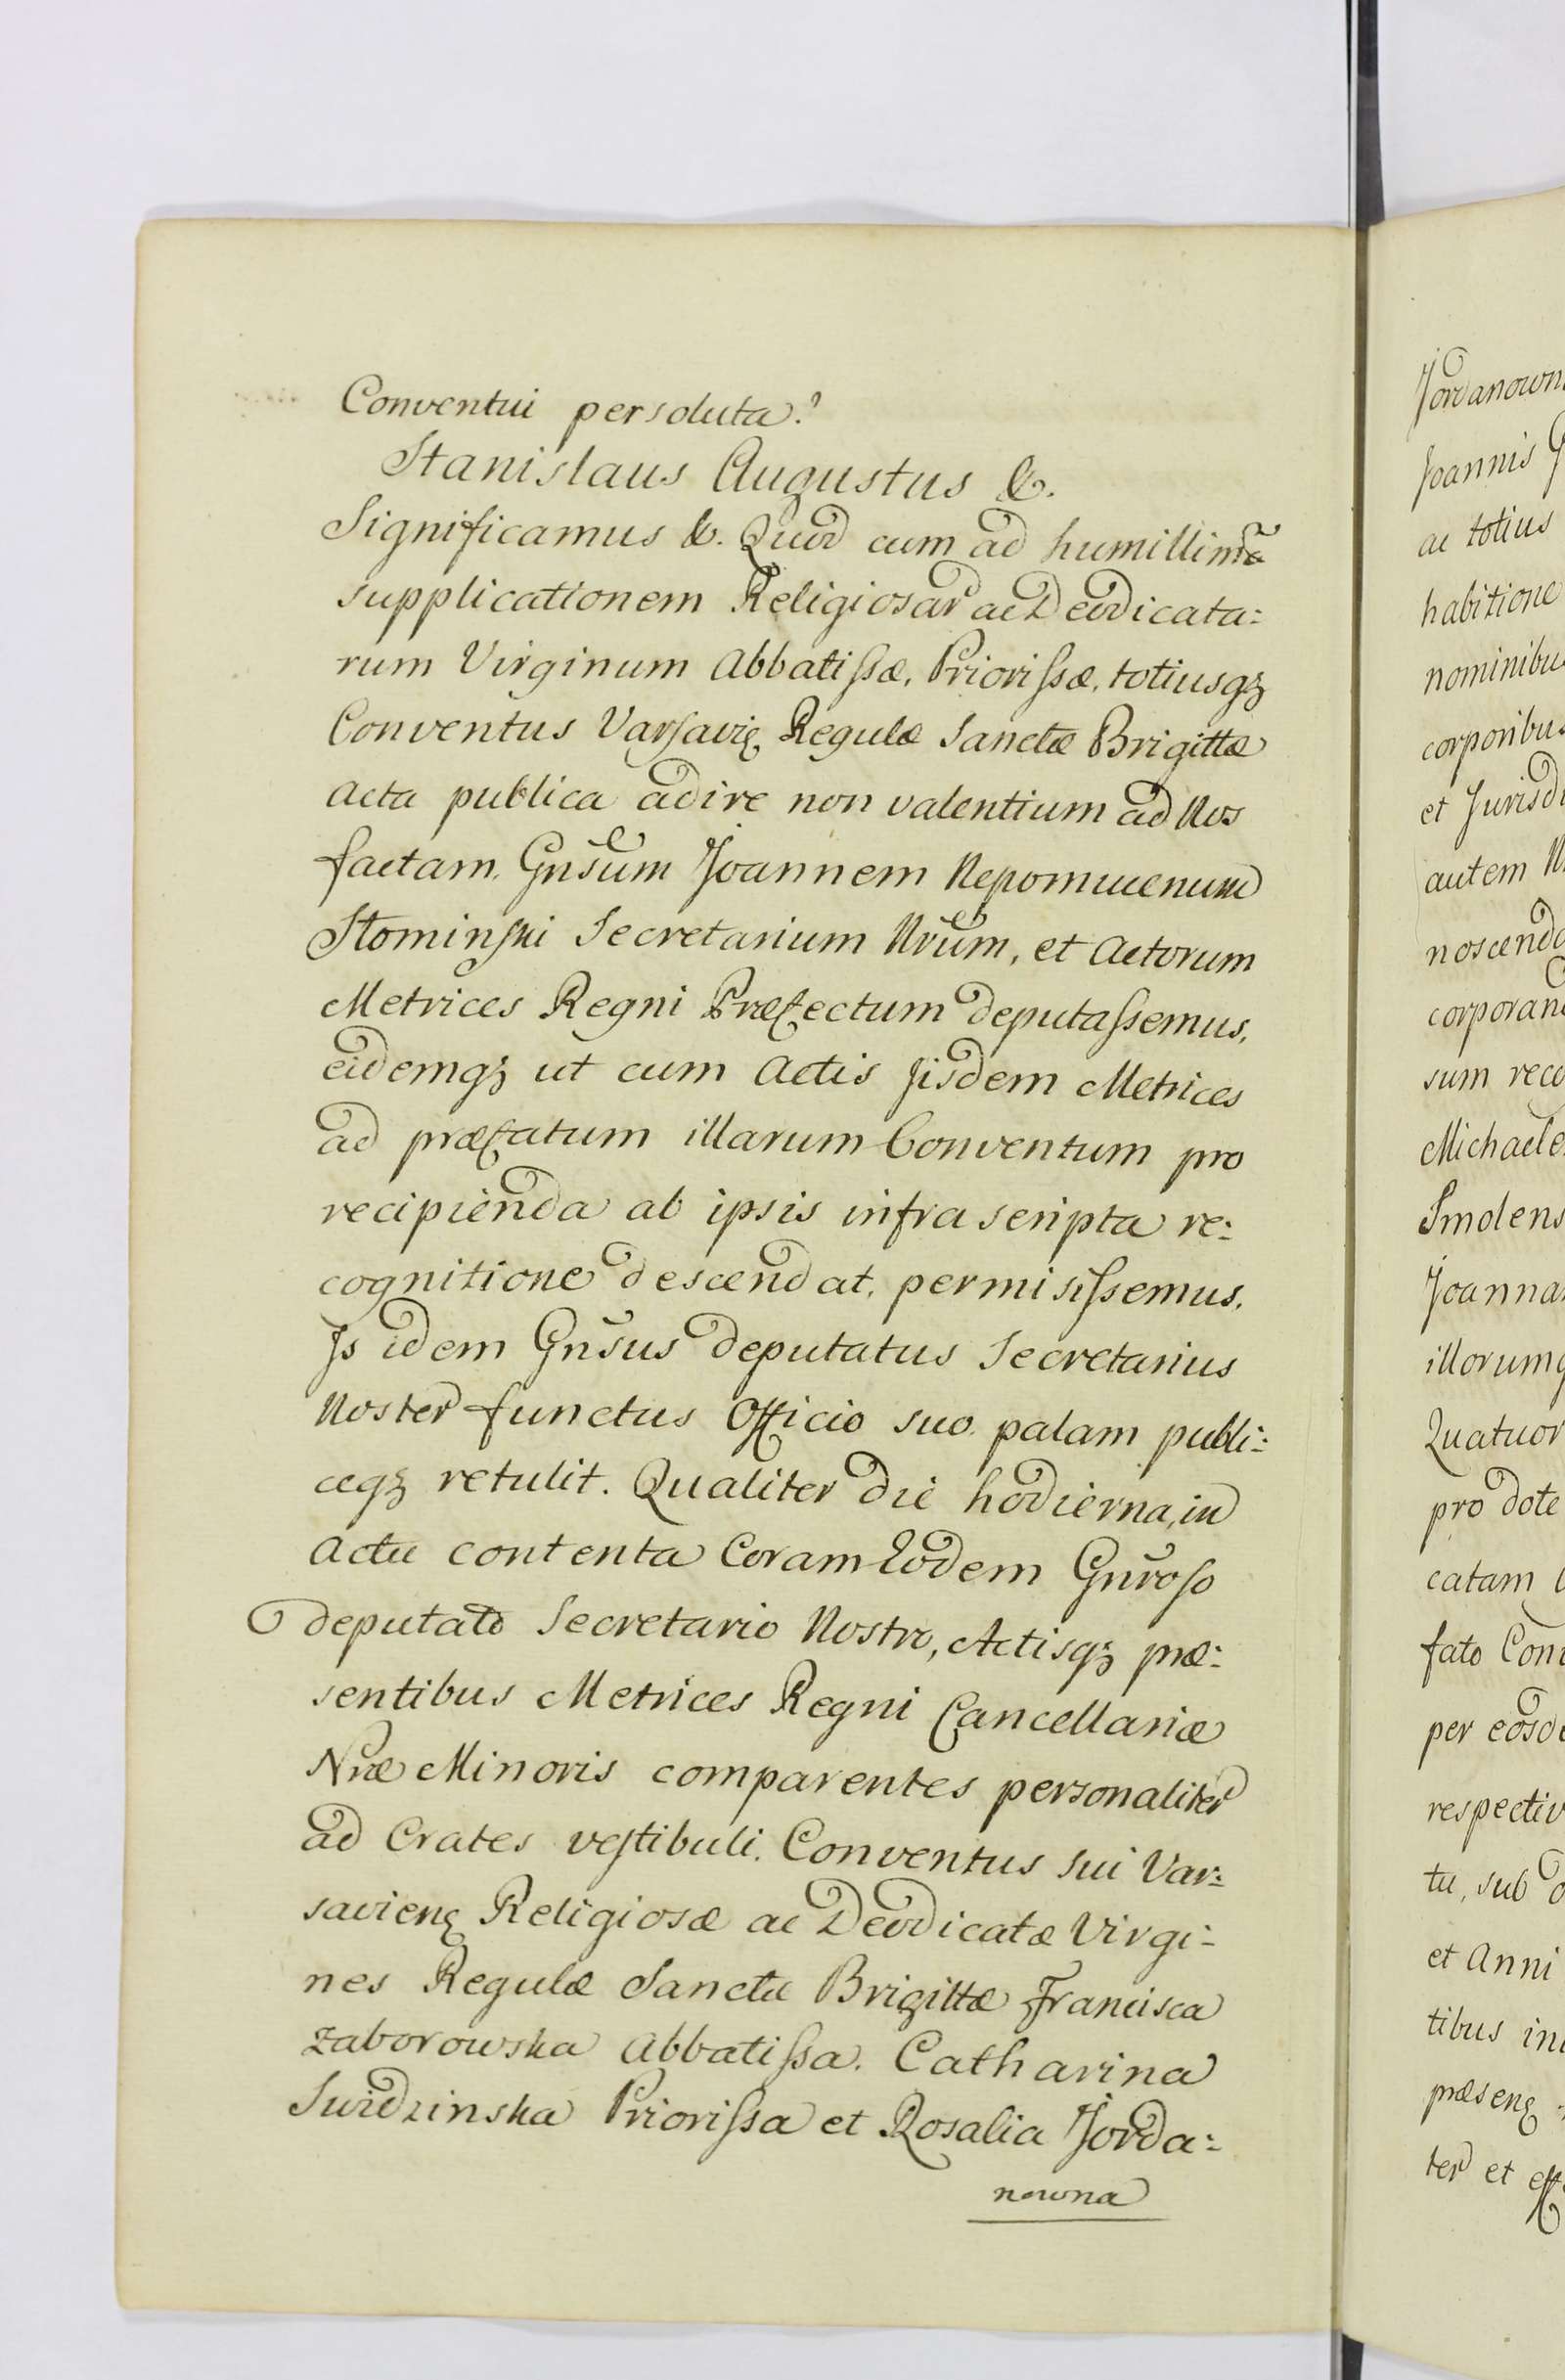 Conventui persoluta.
Stanislaus Augustus &.
Significamus &. Quod cum ad humillimã
supplicationem Religiosar ac Deodicata:
rum Virginum Abbatissæ, Priorissæ, totiusqꝫ
Conventus Varsavię Regulæ Sanctæ Brigittæ
acta publica adire non valentium ad Nos
factam. Gnsum Joannem Nepomucenum
Słominski Secretarium Nrum, et Actorum
Metrices Regni Præfectum deputassemus,
eidemqꝫ ut cum Actis Jisdem Metrices
ad præfatum illarum Conventum pro
recipienda ab ipsis infra scripta re:
cognitione descendat, permisissemus.
Js idem Gnsus deputatus Secretarius
Noster functus Officio suo palam publi:
ceqꝫ retulit. Qualiter die hodierna, in
Actu contenta Coram Eodem Gnroso
deputato Secretario Nostro, Actisqꝫ præ:
sentibus Metrices Regni Cancellariæ
Nræ Minoris comparentes personaliter
ad Crates vestibuli. Conventus sui Var:
savienę Religiosæ ac Deodicatæ Virgi:
nes Regulæ Sanctæ Brigittæ Francisca
Zaborowska Abbatissa. Catharina
Swidzinska Priorissa et Rosalia Jorda:
nowna
Jordanown
Joannis
ac totius
habitione
nominibus
corporibus
et Jurisdi
autem
noscend
corporan
sum reco
Michaele
Smolens
Joanna
illorumq
Quatuor
pro dote
catam
fato Con
per eosde
respectiv
tu, sub
et Anni
tibus in
præsenę
ter et eff